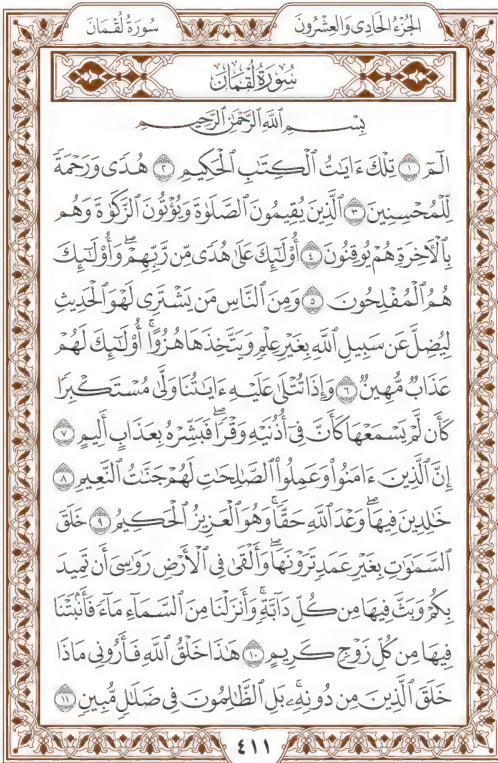 الجُزْءُ الحَادِى وَالعِشْرُونَ سُورَةُ لُقْمَانَ
سُورَةُ لُقْمَانَ
بِسْمِ ٱللَّهِ ٱلرَّحْمَٰنِ ٱلرَّحِيمِ
الٓمٓ ١ تِلْكَ ءَايَٰتُ ٱلْكِتَٰبِ ٱلْحَكِيمِ ٢ هُدًى وَرَحْمَةً
لِّلْمُحْسِنِينَ ٣ ٱلَّذِينَ يُقِيمُونَ ٱلصَّلَوٰةَ وَيُؤْتُونَ ٱلزَّكَوٰةَ وَهُم
بِٱلْأَخِرَةِ هُمْ يُوقِنُونَ ٤ أُوْلَٰٓئِكَ عَلَىٰ هُدًى مِّن رَّبِّهِمْۖ وَأُوْلَٰٓئِكَ
هُمُ ٱلْمُفْلِحُونَ ٥ وَمِنَ ٱلنَّاسِ مَن يَشْتَرِى لَهْوَ ٱلْحَدِيثِ
لِيُضِلَّ عَن سَبِيلِ ٱللَّهِ بِغَيْرِ عِلْمٍ وَيَتَّخِذَهَا هُزُوًاۚ أُوْلَٰٓئِكَ لَهُمْ
عَذَابٌ مُّهِينٌ ٦ وَإِذَا تُتْلَىٰ عَلَيْهِ ءَايَٰتُنَا وَلَّىٰ مُسْتَكْبِرًا
كَأَن لَّمْ يَسْمَعْهَا كَأَنَّ فِىٓ أُذُنَيْهِ وَقْرًاۖ فَبَشِّرْهُ بِعَذَابٍ أَلِيمٍ ٧
إِنَّ ٱلَّذِينَ ءَامَنُواْ وَعَمِلُواْ ٱلصَّٰلِحَٰتِ لَهُمْ جَنَّٰتُ ٱلنَّعِيمِ ٨
خَٰلِدِينَ فِيهَاۖ وَعْدَ ٱللَّهِ حَقًّاۚ وَهُوَ ٱلْعَزِيزُ ٱلْحَكِيمُ ٩ خَلَقَ
ٱلسَّمَٰوَٰتِ بِغَيْرِ عَمَدٍ تَرَوْنَهَاۖ وَأَلْقَىٰ فِى ٱلْأَرْضِ رَوَٰسِىَ أَن تَمِيدَ
بِكُمْ وَبَثَّ فِيهَا مِن كُلِّ دَآبَّةٍۚ وَأَنزَلْنَا مِنَ ٱلسَّمَآءِ مَآءً فَأَنۢبَتْنَا
فِيهَا مِن كُلِّ زَوْجٍ كَرِيمٍ ١٠ هَٰذَا خَلْقُ ٱللَّهِ فَأَرُونِى مَاذَا
خَلَقَ ٱلَّذِينَ مِن دُونِهِۦۚ بَلِ ٱلظَّٰلِمُونَ فِى ضَلَٰلٍ مُّبِينٍ ١١
٤١١